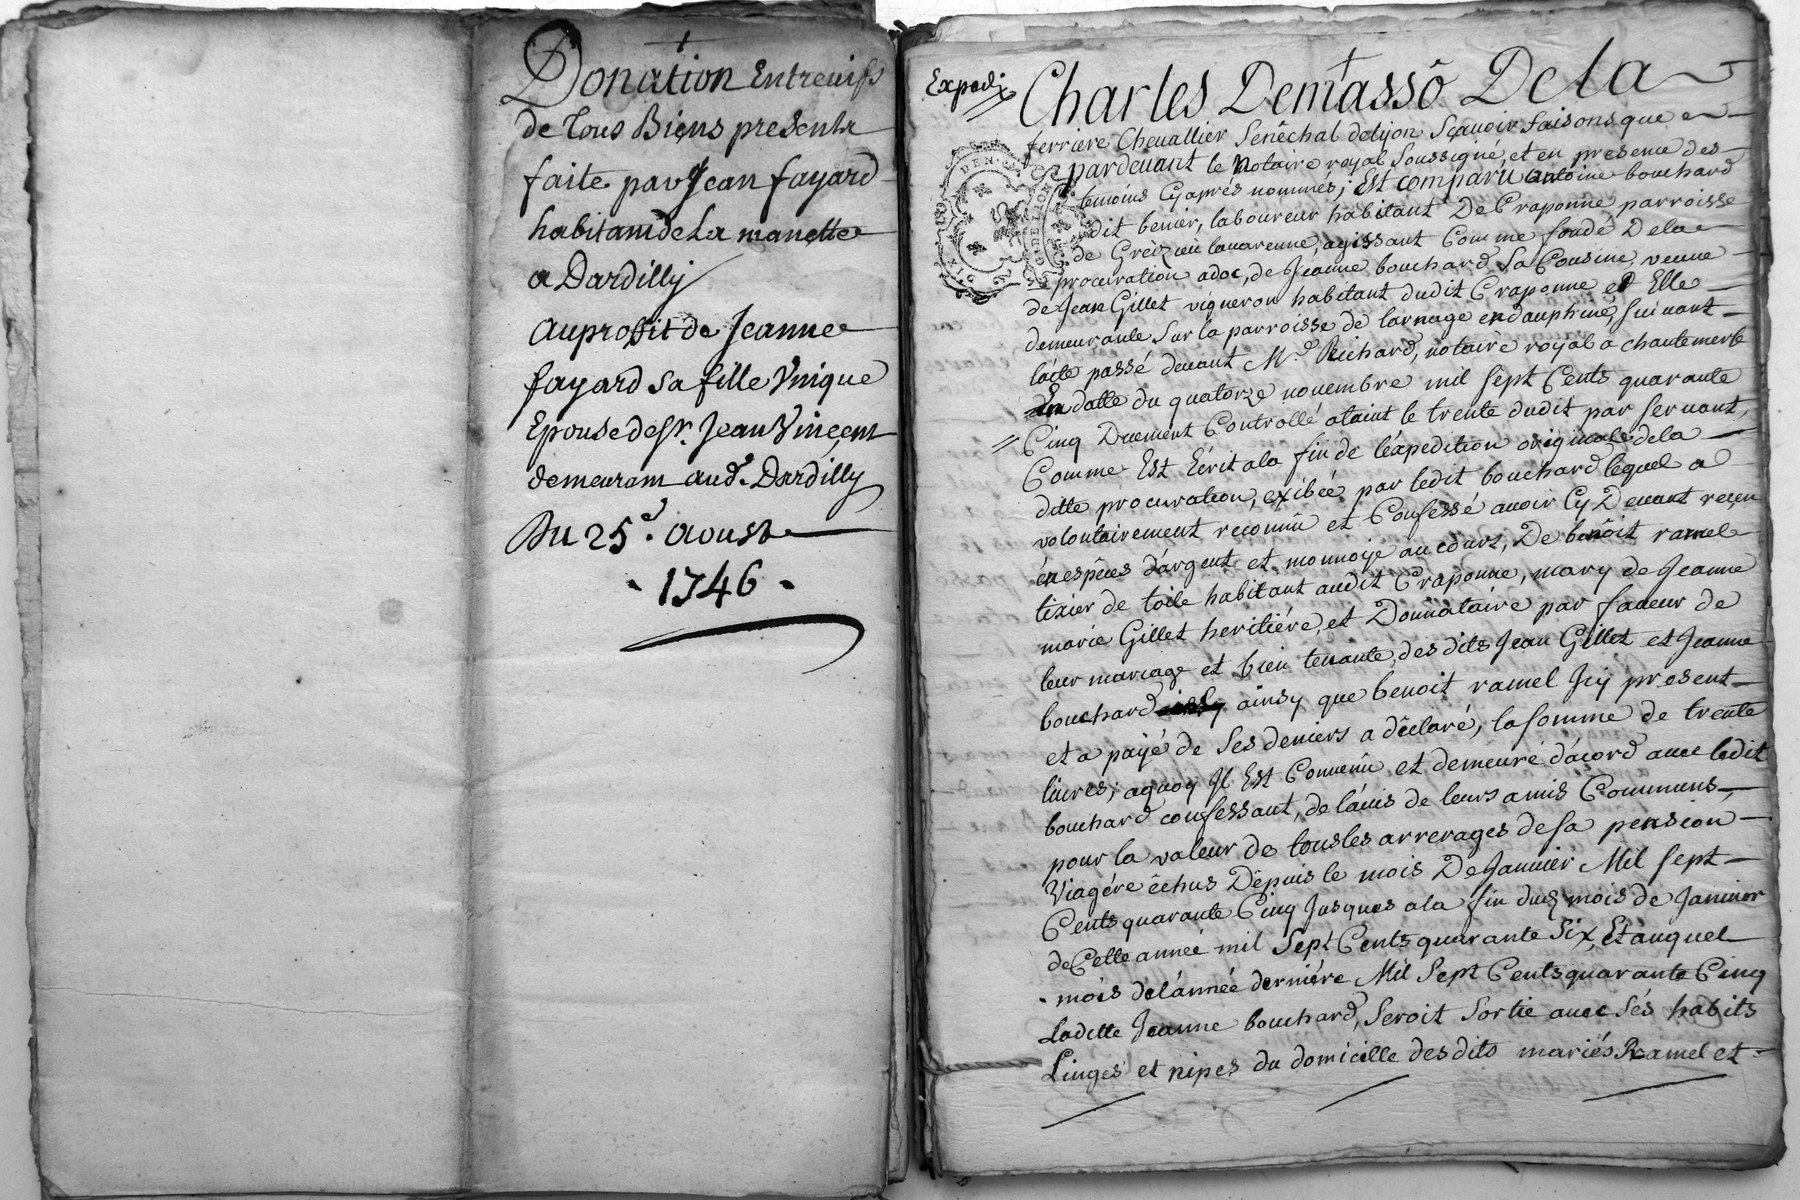 Donation Entreuifs
de Tous Biens presents
faite par Jean fayard
habitant de La manette
a Dardilly
au proffit de Jeanne
fayard sa fille Vnique
Epouse de Sr. Jean Vincent
demeurant aud. Dardilly
Du 25e. Aoust
1746
Expedié
Charles Demassô De la
ferriere Cheuallier Senêchal de lyon Sçauoir faisons que
pardeuant le Notaire royal Soussigné, et en presence des
temoins Cyaprés nommés; Est comparu antoine bouchard
dit benier, laboureur habitant De Craponne parroisse
de Greizieu lauarenne, agissant Comme fondé De la
procuration adoc, de Jeanne bouchard Sa Cousine, veuue
de Jean Gillet vigneron habitant dudit Craponne et Elle
demeurante Sur la parroisse de larnage en dauphiné, suiuant
lacte passé deuant Me. Richard, notaire royal a chantemerle
En datte du quatorze nouembre mil sept Cents quarante
Cinq Duement Controllé ataint le trente dudit par seruant,
Comme Est Ecrit ala fin de l'expedition originale de la
ditte procuration, exibée par ledit bouchard lequel a
volontairement reconnû et Confessé auoir Cy Deuant reçeu
en espêces d'argent et monnoye au cours, De benôit ramel
tixier de toile habitant audit Craponne, mary de Jeanne
marie Gillet heritiére, et Donnataire par faueur de
leur mariage et bien tenante, des dits Jean Gillet et Jeanne
bouchard ainsy que benoit ramel Jcy present
et a payé de ses deniers a dêclaré, la somme de trente
liures; aquoy Jl Est Conuenû et demeuré d'acord auec ledit
bouchard confessant, de l'auis de leurs amis Communs,
pour la valeur de tous les arrerages de sa pension
Viagére êchus Dêpuis le mois De Januier Mil sept
Cents quarante Cinq Jusques a la fin dud. mois de Januier
de Cette année mil Sept Cents quarante Six, Et auquel
mois de l'année derniére Mil Sept Cents quarante Cinq
Ladette Jeanne bouchard, Seroit Sortie auec Sés habits
Linges et nipes du domicille desdits mariés Ramel et